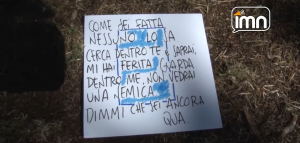 imn
COME SEI FATTA
NESSUNO LO SA
CERCA DENTRO TE E SAPRAI
MI HAI FERITA GUARDA
DENTRO ME, NON VEDRAI
UNA NEMICA
DIMMI CHE SEI ANCORA
QUA